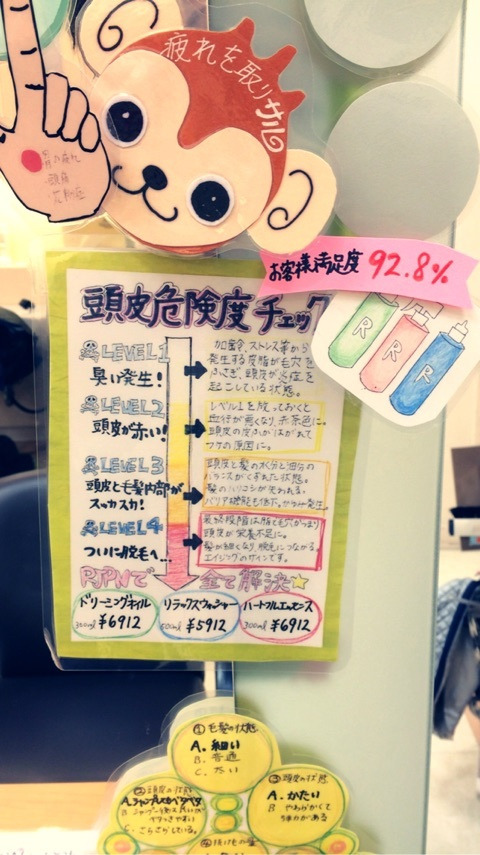 疲れを取りサル
お客様満足度 92.8%
R R R
頭皮危険度チェック
LEVEL1
臭い発生!
加齢、ストレス等から
発生する皮脂が毛穴を
ふさぎ、頭皮が炎症を
起こしている状態。
LEVEL2
頭皮が赤い!
レベル1を放っておくと
血行が悪くなり、赤茶色に。
頭皮の皮ふがはがれて
フケの原因に。
LEVEL3
頭皮と毛髪内部が
スッカスカ!
頭皮と髪の水分と油分の
バランスがくずれた状態。
髪のハリコシが失われる。
バリア機能も低下。かゆみ発生。
LEVEL4
ついに脱毛へ…
最終段階は脂で毛穴がつまり
頭皮が栄養不足に。
髪が細くなり、脱毛につながる。
エイジングのサインです。
全て解決☆
ドリーミングオイル
¥6912
リラックスウォッシャー
¥5912
ハートフルエッセンス
300ml ¥6912
①毛髪の状態
A. 細い
B. 普通
C. 太い
②頭皮の状態
C. さらさらしている。
③頭皮の状態
A. かたい
B. やわらかくて
弾力がある